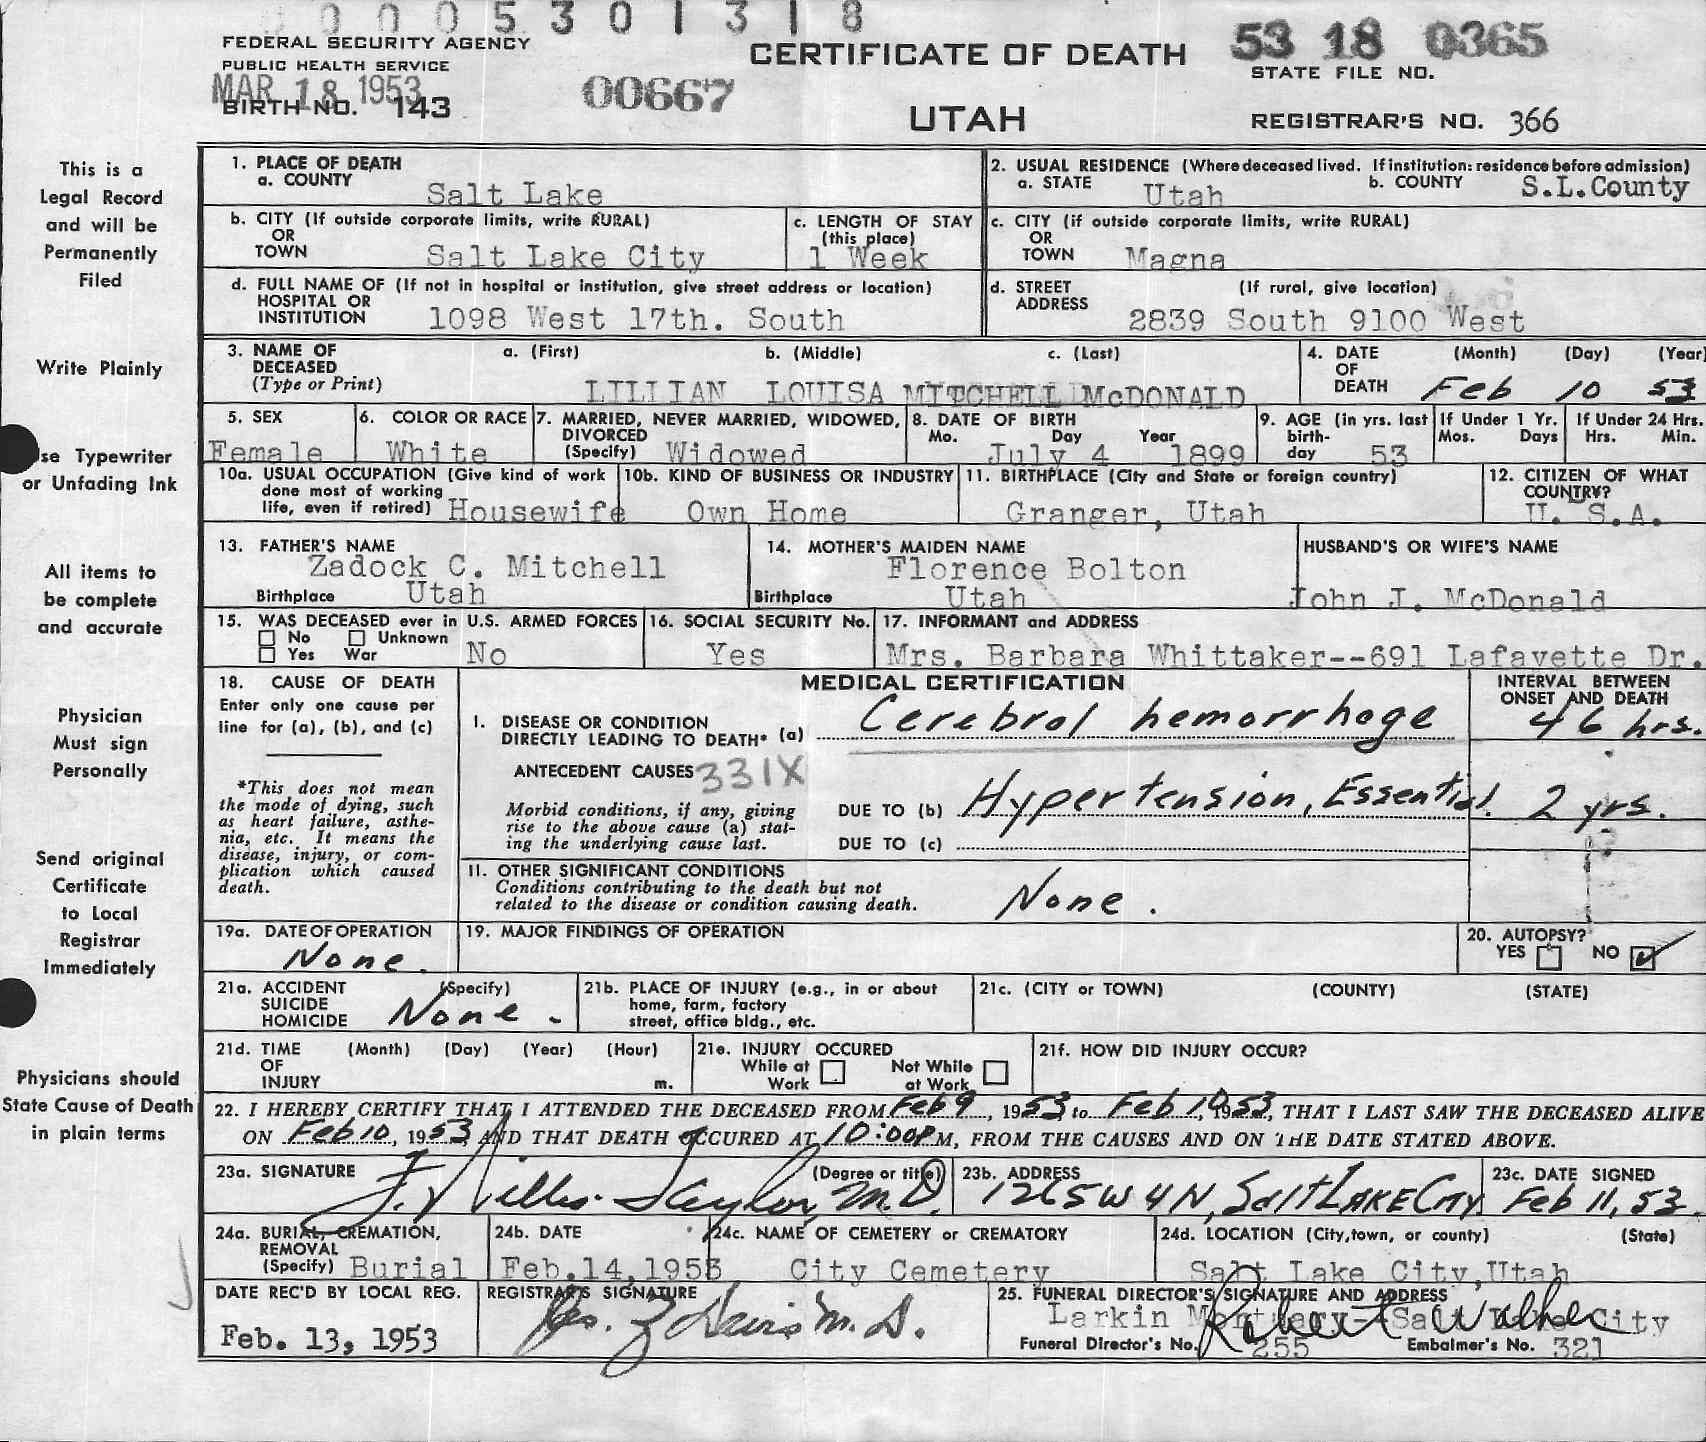 0 0 0 5 3 0 1 3 1 8
FEDERAL SECURITY AGENCY
PUBLIC HEALTH SERVICE
MAR 18 1953
BIRTH NO. 143
00667
CERTIFICATE OF DEATH
UTAH
53 18 0365
STATE FILE NO.
REGISTRAR'S NO. 366
This is a
Legal Record
and will be
Permanently
Filed
Write Plainly
se Typewriter
or Unfading Ink
All items to
be complete
and accurate
Physician
Must sign
Personally
Send original
Certificate
to Local
Registrar
Immediately
Physicians should
State Cause of Death
in plain terms
1. PLACE OF DEATH
a. COUNTY Salt Lake
2. USUAL RESIDENCE (Where deceased lived. If institution: residence before admission)
a. STATE Utah b. COUNTY S.L.County
b. CITY (If outside corporate limits, write RURAL)
OR
TOWN Salt Lake City
c. LENGTH OF STAY
(this place)
1 Week
c. CITY (if outside corporate limits, write RURAL)
OR
TOWN Magna
d. FULL NAME OF (If not in hospital or institution, give street address or location)
HOSPITAL OR
INSTITUTION 1098 West 17th. South
d. STREET (If rural, give location)
ADDRESS
2839 South 9100 West
3. NAME OF a. (First) b. (Middle) c. (Last)
DECEASED
(Type or Print) LILLIAN LOUISA MITCHELL McDONALD
4. DATE (Month) (Day) (Year)
OF
DEATH Feb 10 53
5. SEX
Female
6. COLOR OR RACE
White
7. MARRIED, NEVER MARRIED, WIDOWED,
DIVORCED
(Specify) Widowed
8. DATE OF BIRTH
Mo. Day Year
July 4 1899
9. AGE (in yrs. last
birth-
day 53
If Under 1 Yr.
Mos. Days
If Under 24 Hrs.
Hrs. Min.
10a. USUAL OCCUPATION (Give kind of work
done most of working
life, even if retired) Housewife
10b. KIND OF BUSINESS OR INDUSTRY
Own Home
11. BIRTHPLACE (City and State or foreign country)
Granger, Utah
12. CITIZEN OF WHAT
COUNTRY?
U. S.A.
13. FATHER'S NAME
Zadock C. Mitchell
Birthplace Utah
14. MOTHER'S MAIDEN NAME
Florence Bolton
Birthplace Utah
HUSBAND'S OR WIFE'S NAME
John J. McDonald
15. WAS DECEASED ever in U.S. ARMED FORCES
No Unknown
Yes War No
16. SOCIAL SECURITY No.
Yes
17. INFORMANT and ADDRESS
Mrs. Barbara Whittaker--691 Lafayette Dr.
18. CAUSE OF DEATH
Enter only one cause per
line for (a), (b), and (c)
*This does not mean
the mode of dying, such
as heart failure, asthe-
nia, etc. It means the
disease, injury, or com-
plication which caused
death.
MEDICAL CERTIFICATION
INTERVAL BETWEEN
ONSET AND DEATH
I. DISEASE OR CONDITION
DIRECTLY LEADING TO DEATH* (a) Cerebral hemorrhage 46 hrs.
ANTECEDENT CAUSES 331X
Morbid conditions, if any, giving
rise to the above cause (a) stat-
ing the underlying cause last.
DUE TO (b) Hypertension, Essential. 2 yrs.
DUE TO (c)
11. OTHER SIGNIFICANT CONDITIONS
Conditions contributing to the death but not
related to the disease or condition causing death.
None.
19a. DATE OF OPERATION
None.
19. MAJOR FINDINGS OF OPERATION
20. AUTOPSY?
YES NO
21a. ACCIDENT (Specify)
SUICIDE
HOMICIDE None.
21b. PLACE OF INJURY (e.g., in or about
home, farm, factory
street, office bldg., etc.
21c. (CITY or TOWN) (COUNTY) (STATE)
21d. TIME (Month) (Day) (Year) (Hour)
OF
INJURY m.
21e. INJURY OCCURED
While at Not While
Work at Work
21f. HOW DID INJURY OCCUR?
22. I HEREBY CERTIFY THAT I ATTENDED THE DECEASED FROM Feb 9, 1953, to Feb 10, 1953, THAT I LAST SAW THE DECEASED ALIVE
ON Feb 10, 1953, AND THAT DEATH OCCURED AT 10:00P M, FROM THE CAUSES AND ON THE DATE STATED ABOVE.
23a. SIGNATURE (Degree or title)
Taylor, M.D.
23b. ADDRESS
1265 W 4 N, Salt LAKE City.
23c. DATE SIGNED
Feb 11, 53.
24a. BURIAL, CREMATION,
REMOVAL
(Specify) Burial
24b. DATE
Feb.14,1953
24c. NAME OF CEMETERY or CREMATORY
City Cemetery
24d. LOCATION (City,town, or county) (State)
Salt Lake City,Utah
DATE REC'D BY LOCAL REG.
Feb. 13, 1953
REGISTRAR'S SIGNATURE
Davis M. D.
25. FUNERAL DIRECTOR'S SIGNATURE AND ADDRESS
Larkin Mortuary--Salt Lake City
Robert Walker
Funeral Director's No. 255 Embalmer's No. 321